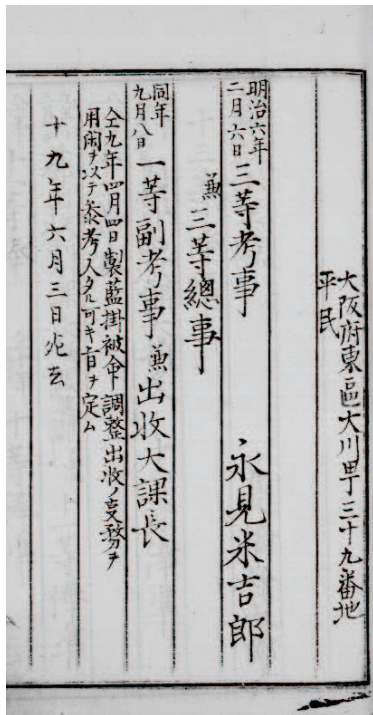 大阪府東區大川町三十九番地
平民
永見米吉郎
明治六年
二月六日 三等考事
兼三等總事
同年
九月八日 一等副考事兼出收大課長
仝九年四月四日製藍掛被命調整出收ノ事務ヲ
用閑ヲ テ参考人タル可キ旨ヲ定ム
十九年六月三日死去